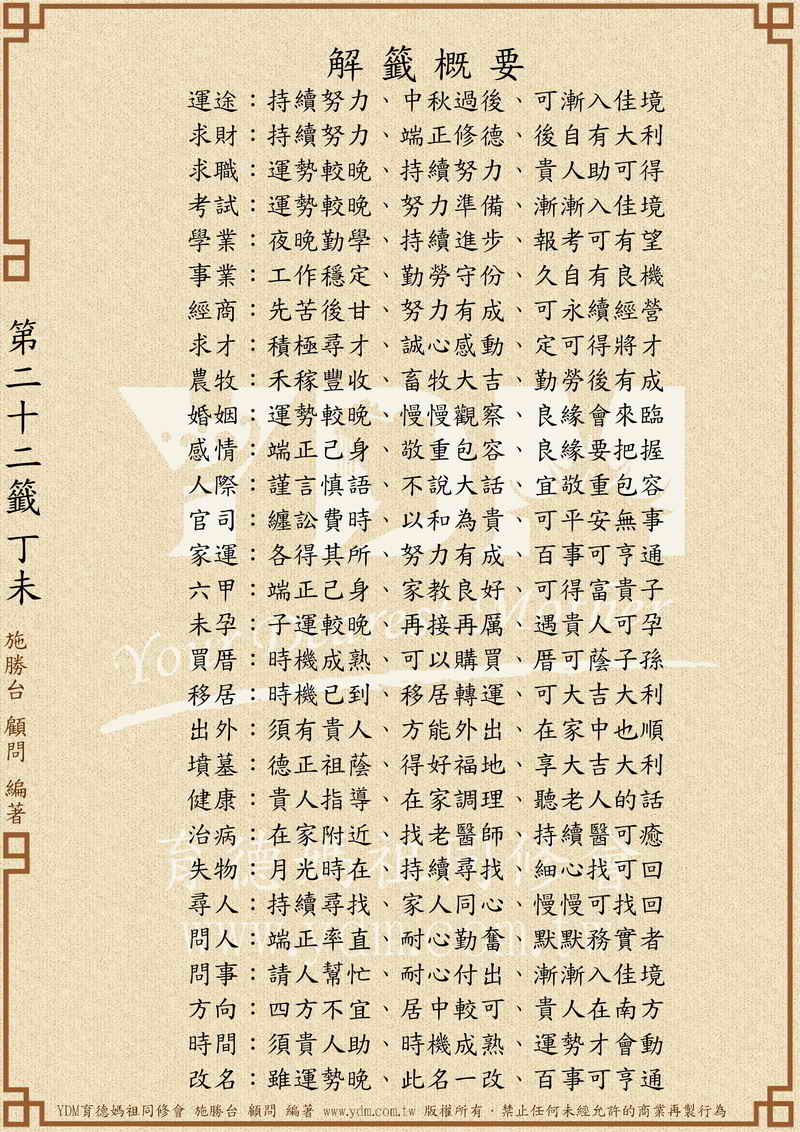 解籤概要
運途：持續努力、中秋過後、可漸入佳境
求財：持續努力、端正修德、後自有大利
求職：運勢較晚、持續努力、貴人助可得
考試：運勢較晚、努力準備、漸漸入佳境
學業：夜晚勤學、持續進步、報考可有望
事業：工作穩定、勤勞守份、久自有良機
經商：先苦後甘、努力有成、可永續經營
求才：積極尋才、誠心感動、定可得將才
農牧：禾稼豐收、畜牧大吉、勤勞後有成
婚姻：運勢較晚、慢慢觀察、良緣會來臨
感情：端正己身、敬重包容、良緣要把握
人際：謹言慎語、不說大話、宜敬重包容
官司：纏訟費時、以和為貴、可平安無事
家運：各得其所、努力有成、百事可亨通
六甲：端正己身、家教良好、可得富貴子
未孕：子運較晚、再接再厲、遇貴人可孕
買厝：時機成熟、可以購買、厝可蔭子孫
移居：時機已到、移居轉運、可大吉大利
出外：須有貴人、方能外出、在家中也順
墳墓：德正祖蔭、得好福地、享大吉大利
健康：貴人指導、在家調理、聽老人的話
治病：在家附近、找老醫師、持續醫可癒
失物：月光時在、持續尋找、細心找可回
尋人：持續尋找、家人同心、慢慢可找回
問人：端正率直、耐心勤奮、默默務實者
問事：請人幫忙、耐心付出、漸漸入佳境
方向：四方不宜、居中較可、貴人在南方
時間：須貴人助、時機成熟、運勢才會動
改名：雖運勢晚、此名一改、百事可亨通
第二十二籤 丁未
施勝台 顧問 編著
YDM
Your Dearest Mother
育德媽祖同修會
www.ydm.com.tw
YDM育德媽祖同修會 施勝台 顧問 編著 www.ydm.com.tw 版權所有．禁止任何未經允許的商業再製行為